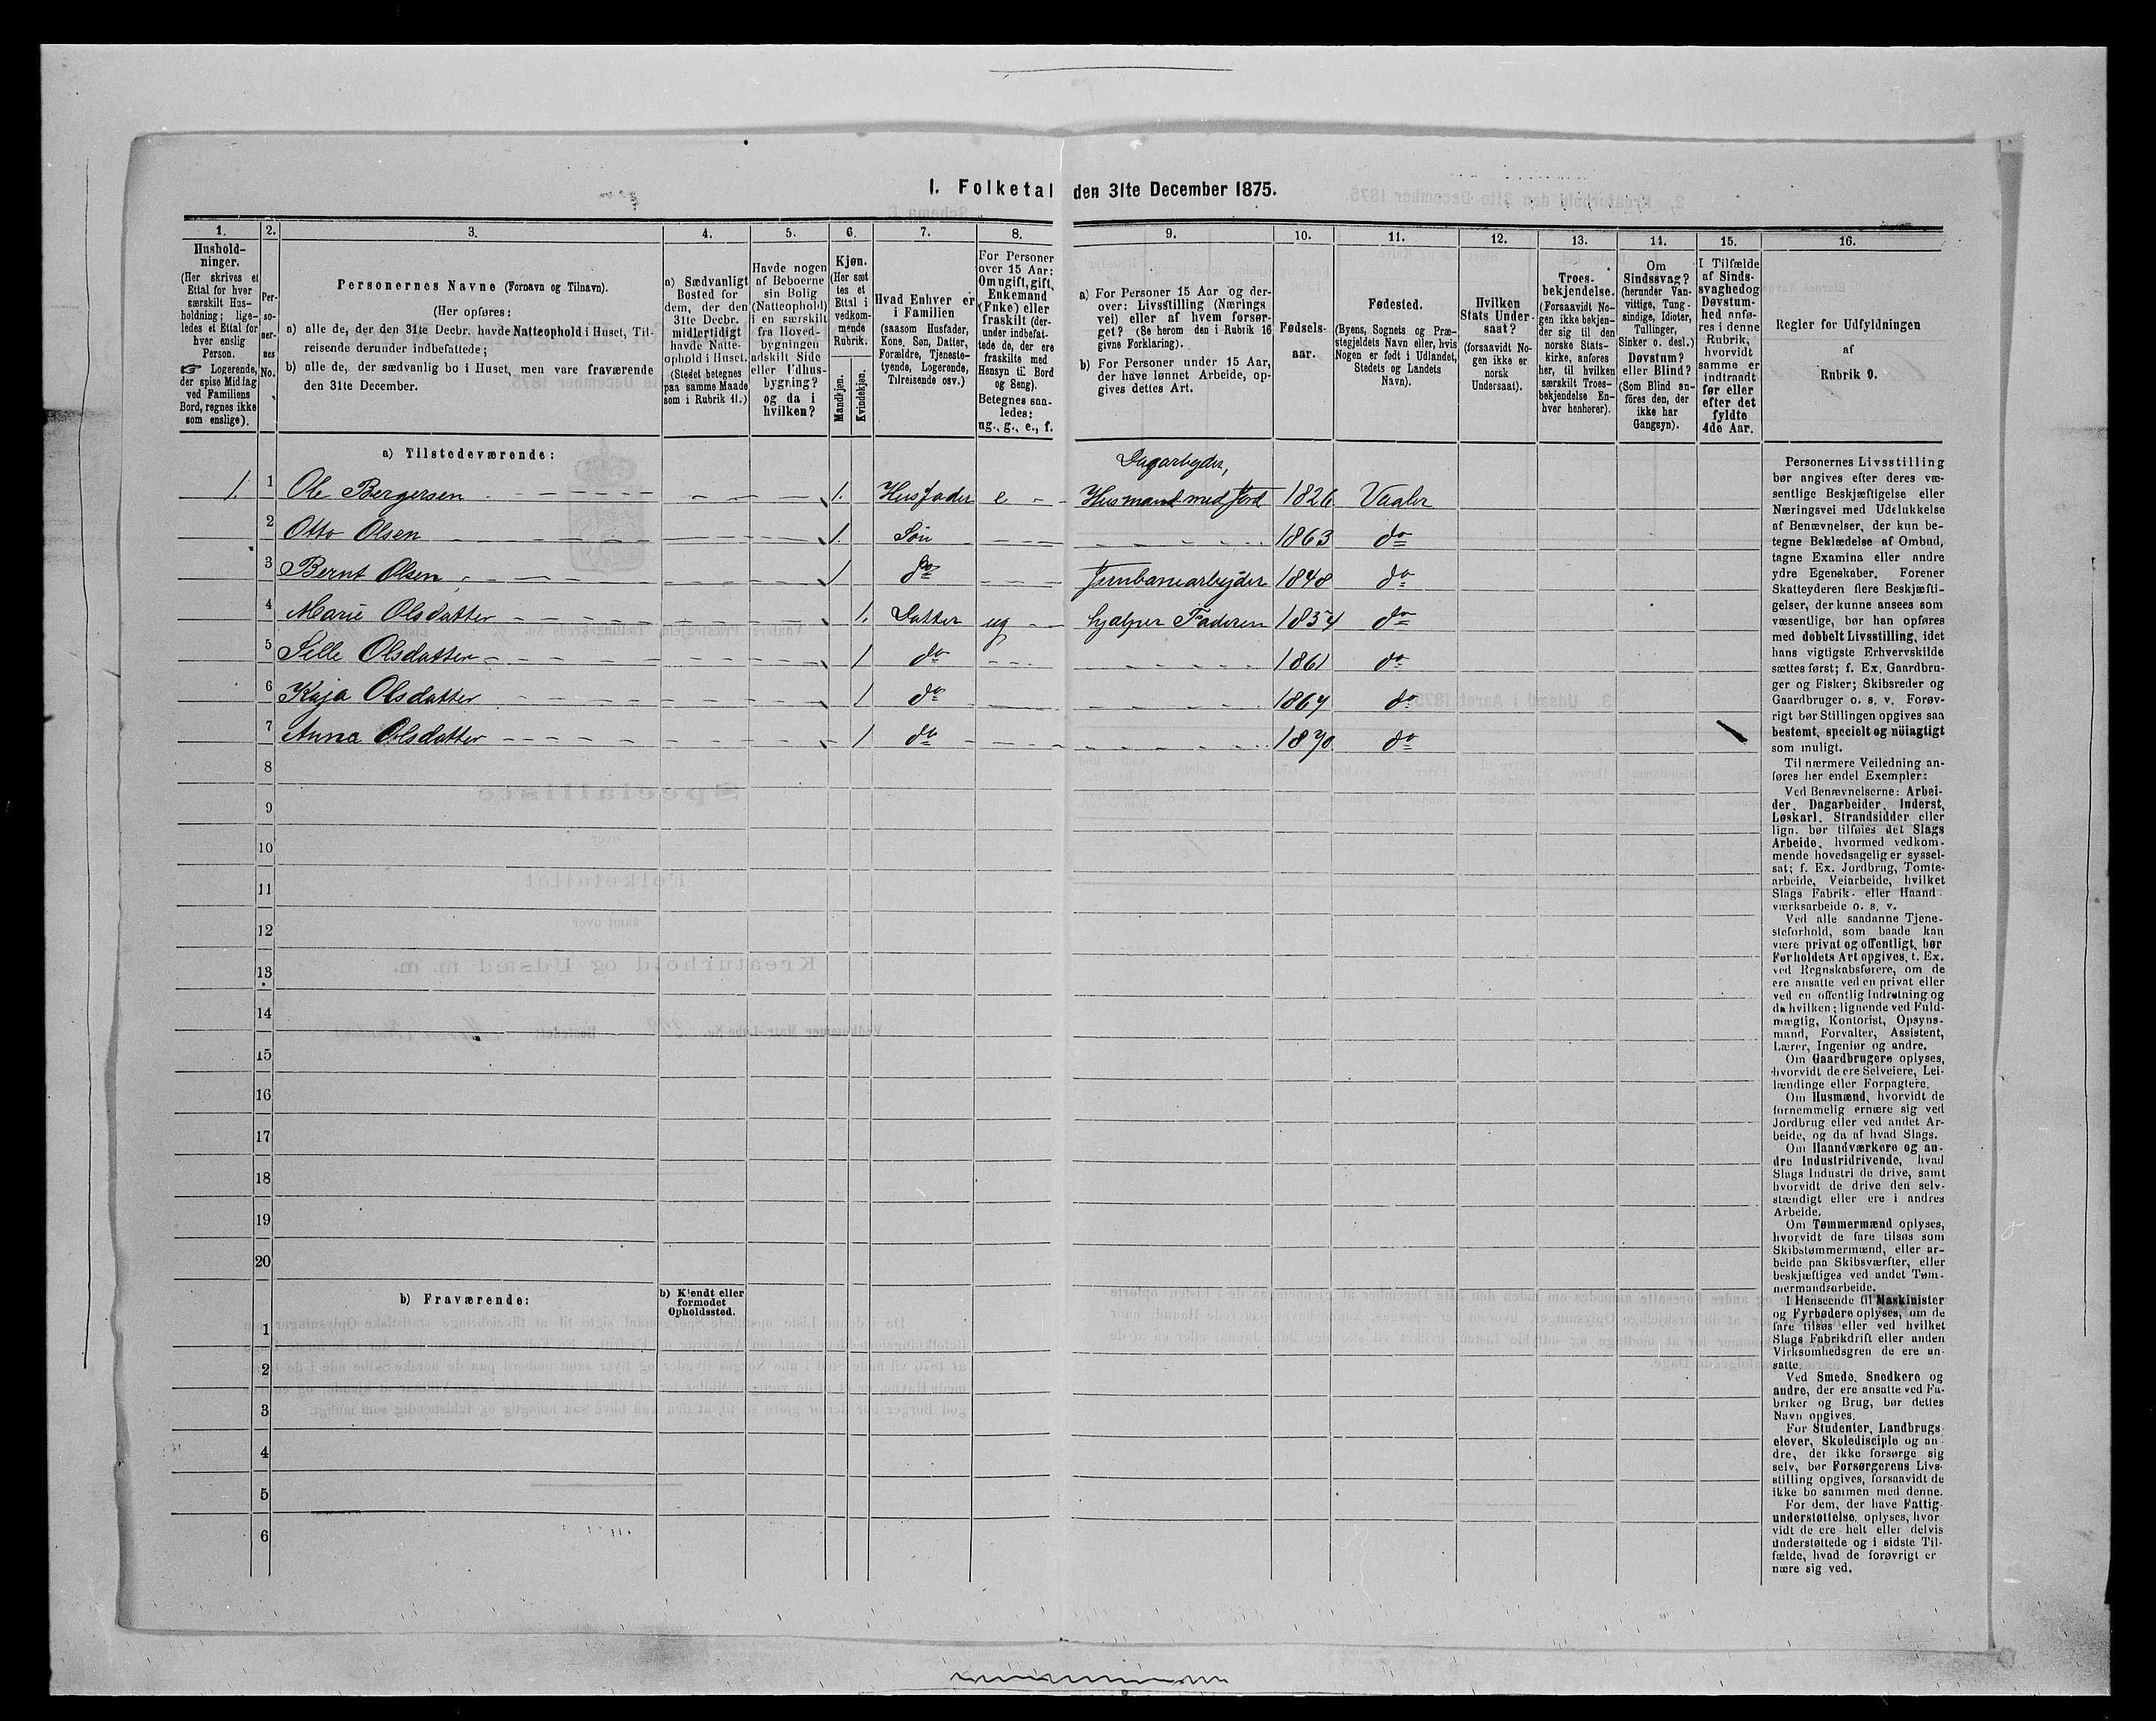 I. Folketal den 31te December 1875.
1. 2. 3. 4. 5. 6. 7. 8. 9. 10. 11. 12. 13. 14. 15. 16.
Hushold-
ninger.
(Her skrives et
Ettal for hver
særskilt Hus-
holdning; lige-
ledes et Ettal for
hver enslig
Person.
☞ Logerende,
der spise Middag
ved Familiens
Bord, regnes ikke
som enslige).
Per-
so-
ner-
nes
No.
Personernes Navne (Fornavn og Tilnavn).
(Her opføres:
a) alle de, der den 31te Decbr. havde Natteophold i Huset, Til-
reisende derunder indbefattede;
b) alle de, der sædvanlig bo i Huset, men vare fraværende
den 31te December.
a) Sædvanligt
Bosted for
dem, der den
31te Decbr.
midlertidigt
havde Natte-
ophold i Huset.
(Stedet betegnes
paa samme Maade
som i Rubrik 11.)
Havde nogen
af Beboerne
sin Bolig
(Natteophold)
i en særskilt
fra Hoved-
bygningen
adskilt Side
eller Udhus-
bygning?
og da i
hvilken?
Kjøn.
(Her sæt
tes et
Ettal i
vedkom-
mende
Rubrik.
Mandkjøn.
Kvindekjøn.
Hvad Enhver er
i Familien
(saasom Husfader,
Kone, Søn, Datter,
Forældre, Tjeneste-
tyende, Logerende,
Tilreisende osv.)
For Personer
over 15 Aar:
Om ugift, gift,
Enkemand
(Enke) eller
fraskilt (der-
under indbefat-
tede de, der ere
fraskilte med
Hensyn til Bord
og Seng).
Betegnes saa-
ledes:
ug., g., e., f.
a) For Personer 15 Aar og der-
over: Livsstilling (Nærings
vei) eller af hvem forsør-
get? (Se herom den i Rubrik 16
givne Forklaring).
b) For Personer under 15 Aar,
der have lønnet Arbeide, op-
gives dettes Art.
Fødsels-
aar.
Fødested.
(Byens, Sognets og Præ-
stegjeldets Navn eller, hvis
Nogen er født i Udlandet,
Stedets og Landets
Navn).
Hvilken
Stats Under-
saat?
(forsaavidt No-
gen ikke er
norsk
Undersaat).
Troes-
bekjendelse.
(Forsaavidt No-
gen ikke bekjen-
der sig til den
norske Stats-
kirke, anføres
her, til hvilken
særskilt Troes-
bekjendelse En-
hver henhører).
Om
Sindssvag?
(herunder Van-
vittige, Tung-
sindige, Idioter,
Tullinger,
Sinker o. desl.)
Døvstum?
eller Blind?
(Som Blind an-
føres den, der
ikke har
Gangsyn).
I Tilfælde
af Sinds-
svaghed og
Døvstum-
hed anfø-
res i denne
Rubrik,
hvorvidt
samme er
indtraadt
før eller
efter det
fyldte
4de Aar.
Regler for Udfyldningen
af
Rubrik 9.
a) Tilstedeværende:
Dagarbeyder,
1. 1 Ole Bergersen 1. Husfader e Husmand med Jord 1826 Vaaler
2 Otto Olsen 1. Søn 1863 do
3 Bernt Olsen 1 do Jernbanearbeyder 1848 do
4 Marie Olsdatter 1. Datter ug hjælper Faderen 1854 do
5 Olsdatter 1 do 1861 do
6 Kaja Olsdatter 1 do 1867 do
7 Anna Olsdatter 1 do 1870 do
8
9
10
11
12
13
14
15
16
17
18
19
20
b) Fraværende:
b) Kjendt eller
formodet
Opholdssted.
1
2
3
4
5
6
Personernes Livsstilling
bør angives efter deres væ-
sentlige Beskjæftigelse eller
Næringsvei med Udelukkelse
af Benævnelser, der kun be-
tegne Beklædelse af Ombud,
tagne Examina eller andre
ydre Egenskaber. Forener
Skatteyderen flere Beskjæfti-
gelser, der kunne ansees som
væsentlige, bør han opføres
med dobbelt Livsstilling, idet
hans vigtigste Erhvervskilde
sættes først; f. Ex. Gaardbru-
ger og Fisker; Skibsreder og
Gaardbruger o. s. v. Forøv-
rigt bør Stillingen opgives saa
bestemt, specielt og nöiagtigt
som muligt.
Til nærmere Veiledning an-
føres her endel Exempler:
Ved Benævnelserne: Arbei-
der, Dagarbeider, Inderst,
Løskarl, Strandsidder eller
lign. bør tilføies det Slags
Arbeide, hvormed vedkom-
mende hovedsagelig er syssel-
sat; f. Ex. Jordbrug, Tomte-
arbeide, Veiarbeide, hvilket
Slags Fabrik- eller Haand-
værksarbeide o. s. v.
Ved alle saadanne Tjene-
steforhold, som baade kan
være privat og offentligt, bør
Forholdets Art opgives, t. Ex.
ved Regnskabsførere, om de
ere ansatte ved en privat eller
ved en offentlig Indretning og
da hvilken; lignende ved Fuld-
mægtig, Kontorist, Opsyns-
mand, Forvalter, Assistent,
Lærer, Ingeniør og andre.
Om Gaardbrugere oplyses,
hvorvidt de ere Selveiere, Lei-
lændinge eller Forpagtere.
Om Husmænd, hvorvidt de
fornemmelig ernære sig ved
Jordbrug eller ved andet Ar-
beide, og da af hvad Slags.
Om Haandværkere og an-
dre Industridrivende, hvad
Slags Industri de drive, samt
hvorvidt de drive den selv-
stændigt eller ere i andres
Arbeide.
Om Tømmermænd oplyses,
hvorvidt de fare tilsøs som
Skibstømmermænd, eller ar-
beide paa Skibsværfter, eller
beskjæftiges ved andet Tøm-
mermandsarbeide.
I Henseende til Maskinister
og Fyrbødere oplyses, om de
fare tilsøs eller ved hvilket
Slags Fabrikdrift eller anden
Virksomhedsgren de ere an-
satte.
Ved Smede, Snedkere og
andre, der ere ansatte ved Fa-
briker og Brug, bør dettes
Navn opgives.
For Studenter, Landbrugs-
elever, Skoledisciple og an-
dre, der ikke forsørge sig
selv, bør Forsørgerens Livs-
stilling opgives, forsaavidt de
ikke bo sammen med denne.
For dem, der have Fattig-
understøttelse, oplyses, hvor-
vidt de ere helt eller delvis
understøttede og i sidste Til-
fælde, hvad de forøvrigt er-
nære sig ved.